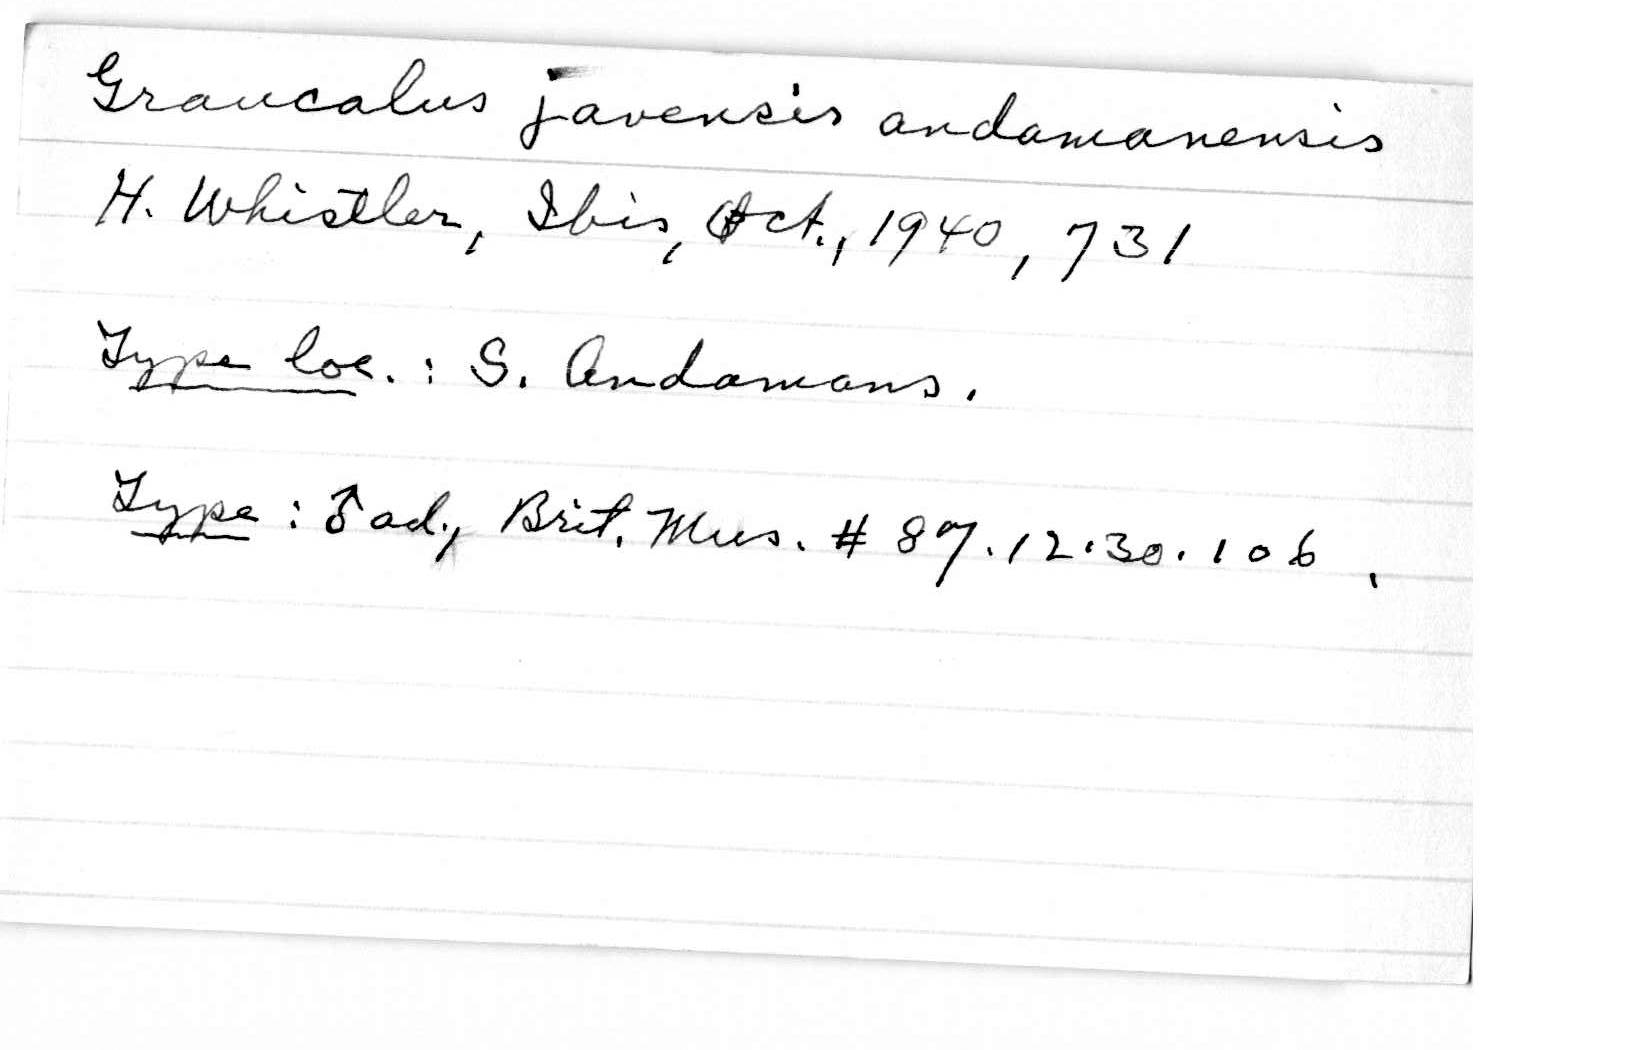 Graucalus javensis andamanensis
H. Whistler, Ibis, Oct., 1940, 731
Type loc. : S. Andamans.
Type : ♂ ad., Brit. Mus. # 87.12.30.106.